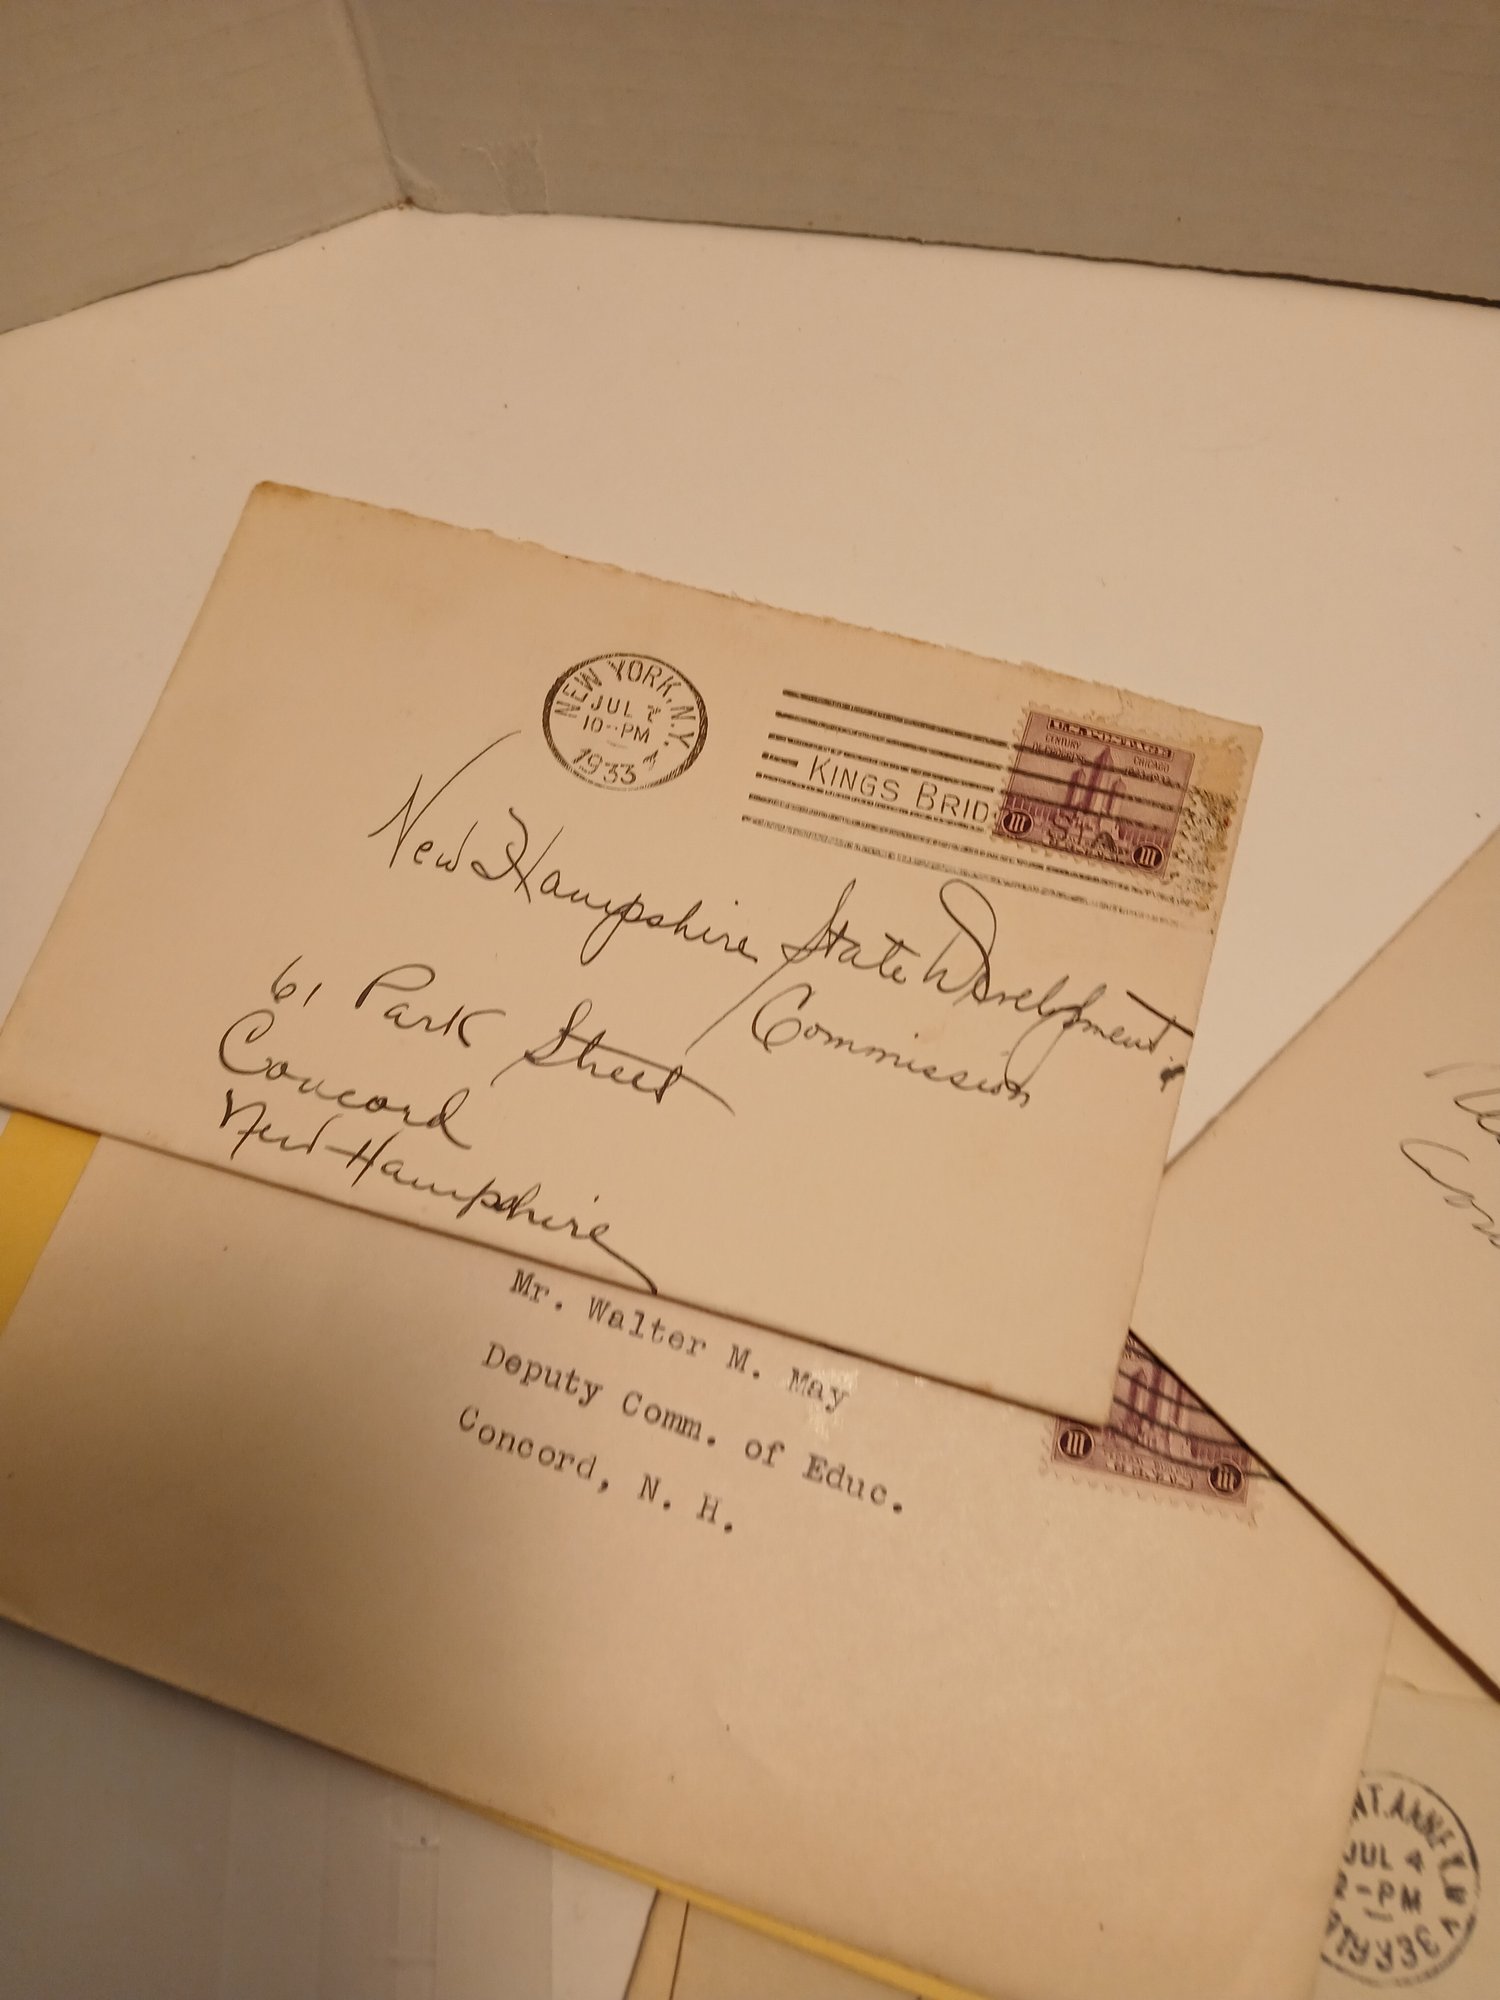 NEW YORK, N.Y. 4
JUL 7
10-PM
1933
KINGS BRID
STA
U.S. POSTAGE
CENTURY
OF PROGRESS
CHICAGO
New Hampshire State Development
Commission
61 Park Street
Concord
New Hampshire
Mr. Walter M. May
Deputy Comm. of Educ.
Concord, N. H.
JUL 4
-PM